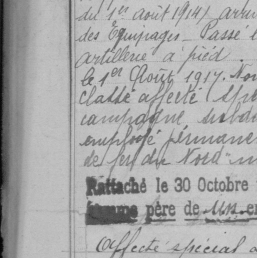 du 1er août 1914) arri
des Equipages - Passé
artillerie à pied
le 1er Août 1917. Nom
classé affecté (spé
campagne
employé permane
de fer du Nord
Rattaché le 30 Octobre
père de un en
Affecté spécial